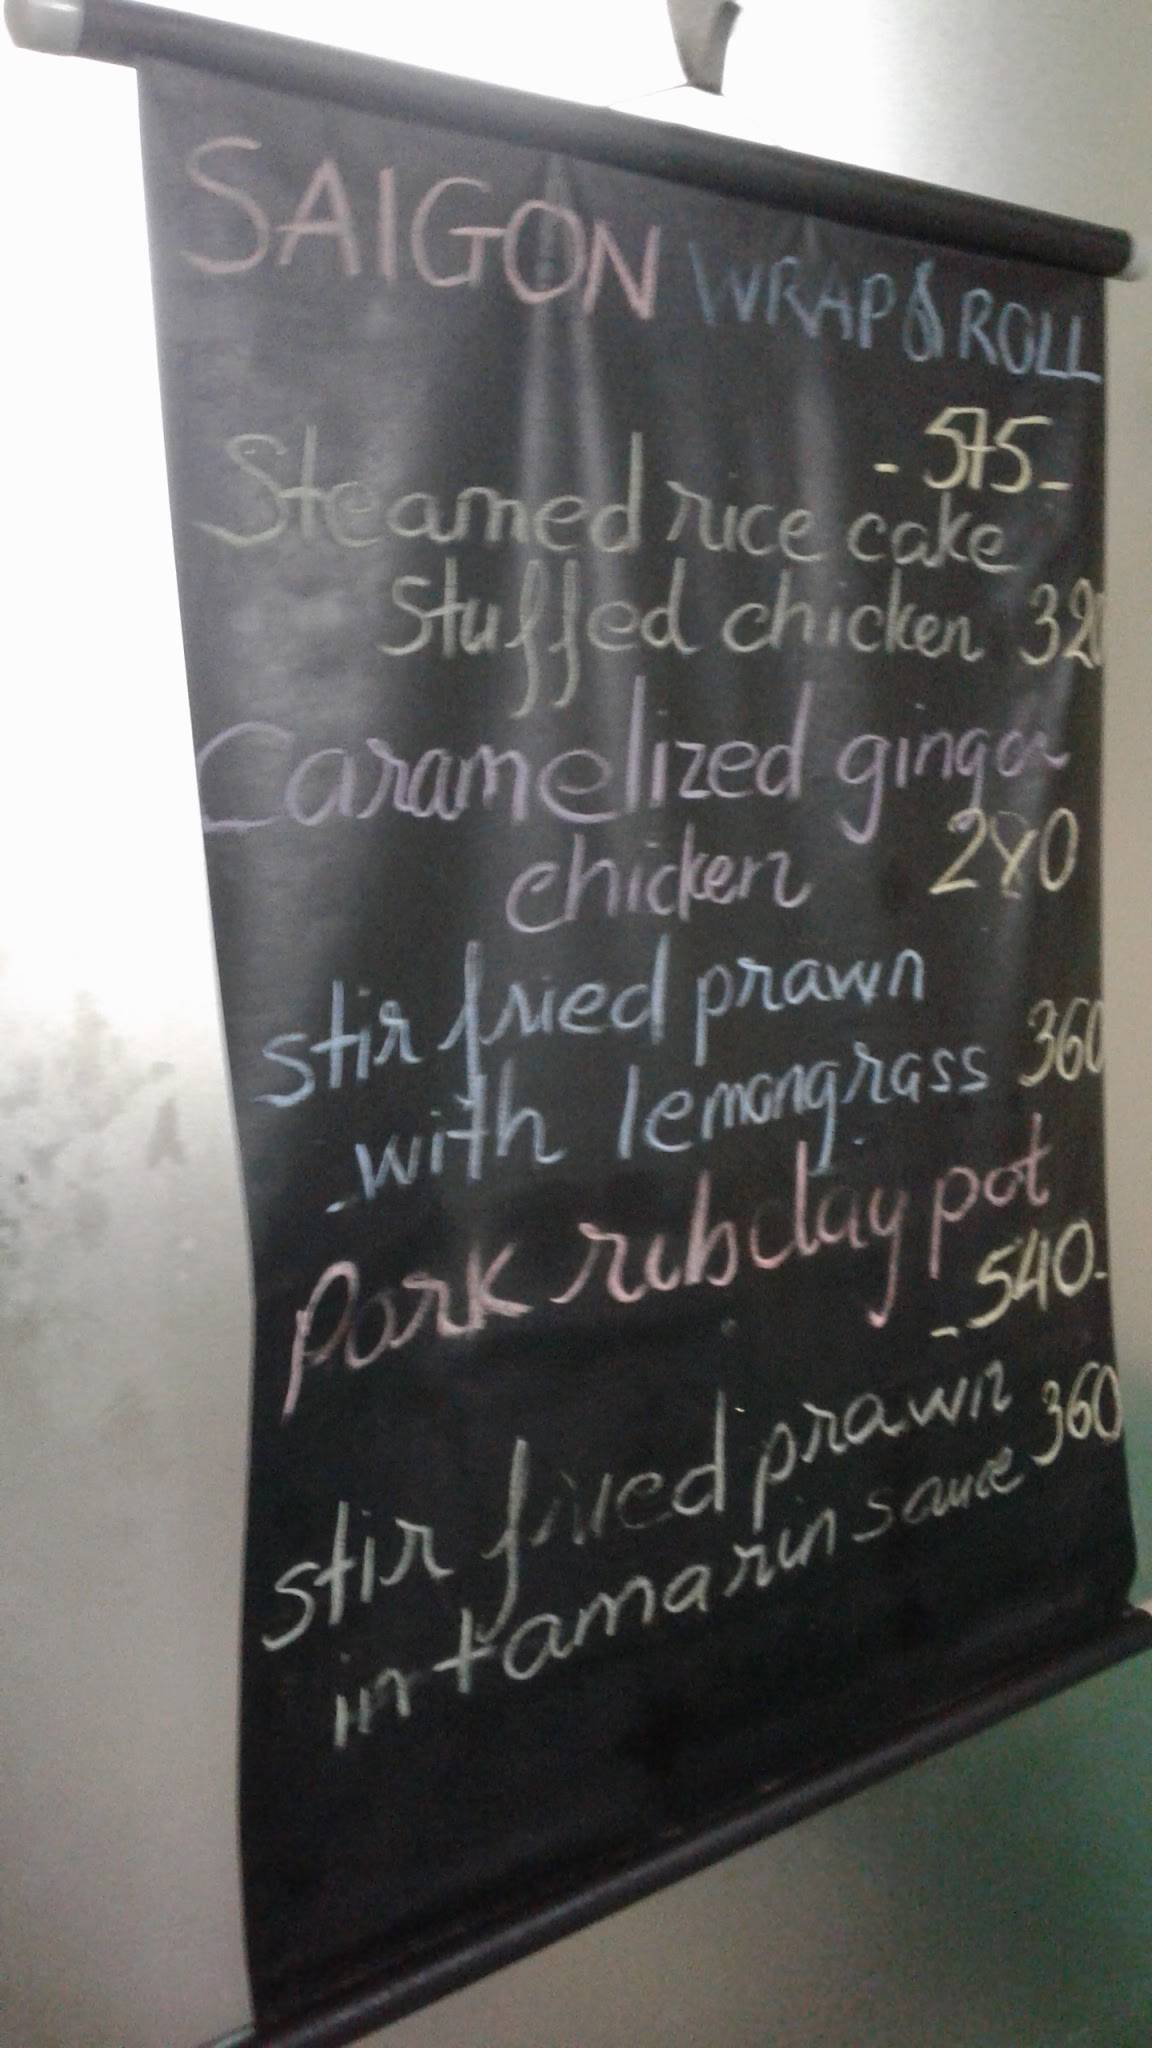 SAIGON WRAP & ROLL
- 575 -
Steamed rice cake
Stuffed chicken 320
Caramelized ginger
chicken 280
stir fried prawn
with lemongrass 360
Pork rib clay pot
- 540 -
stir fried prawn
in tamarin sauce 360